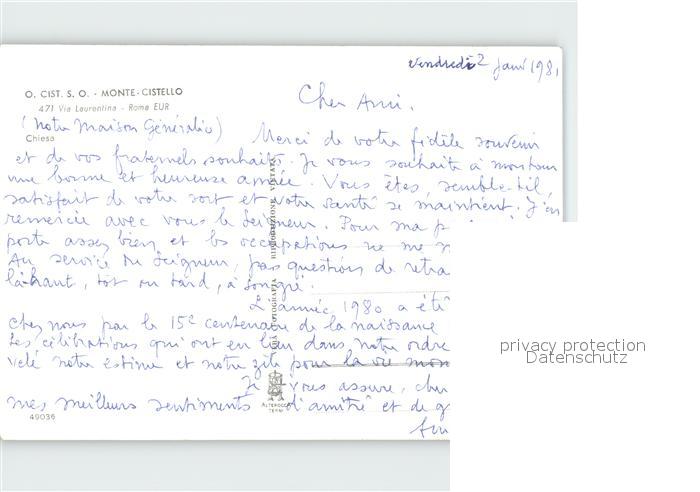 vendredi 2 janv 1981
O. CIST. S. O. - MONTE-CISTELLO
471 Via Laurentina - Roma EUR
(Notre Maison Généralice)
Chiesa
Cher Ami.
Merci de votre fidèle souvenir
et de vos fraternels souhaits. Je vous souhaite à mon tour
une bonne et heureuse année. Vous êtes, semble-t-il,
satisfait de votre sort et votre santé se maintient. J'en
remercie avec vous le Seigneur. Pour ma p
porte assez bien et les occupations ne me
Au service du Seigneur, pas questions de retra
là-haut, tôt ou tard, à son gré.
L'année 1980 a été
chez nous par le 15e centenaire de la naissance
Les célébrations qui ont eu lieu dans notre ordre
velé notre estime et notre zèle pour la vie mon
Je vous assure, cher
mes meilleurs sentiments d'amitié et de g
RIPRODUZIONE VIETATA
VERA FOTOGRAFIA
ALTEROCCA
TERNI
49036
privacy protection
Datenschutz